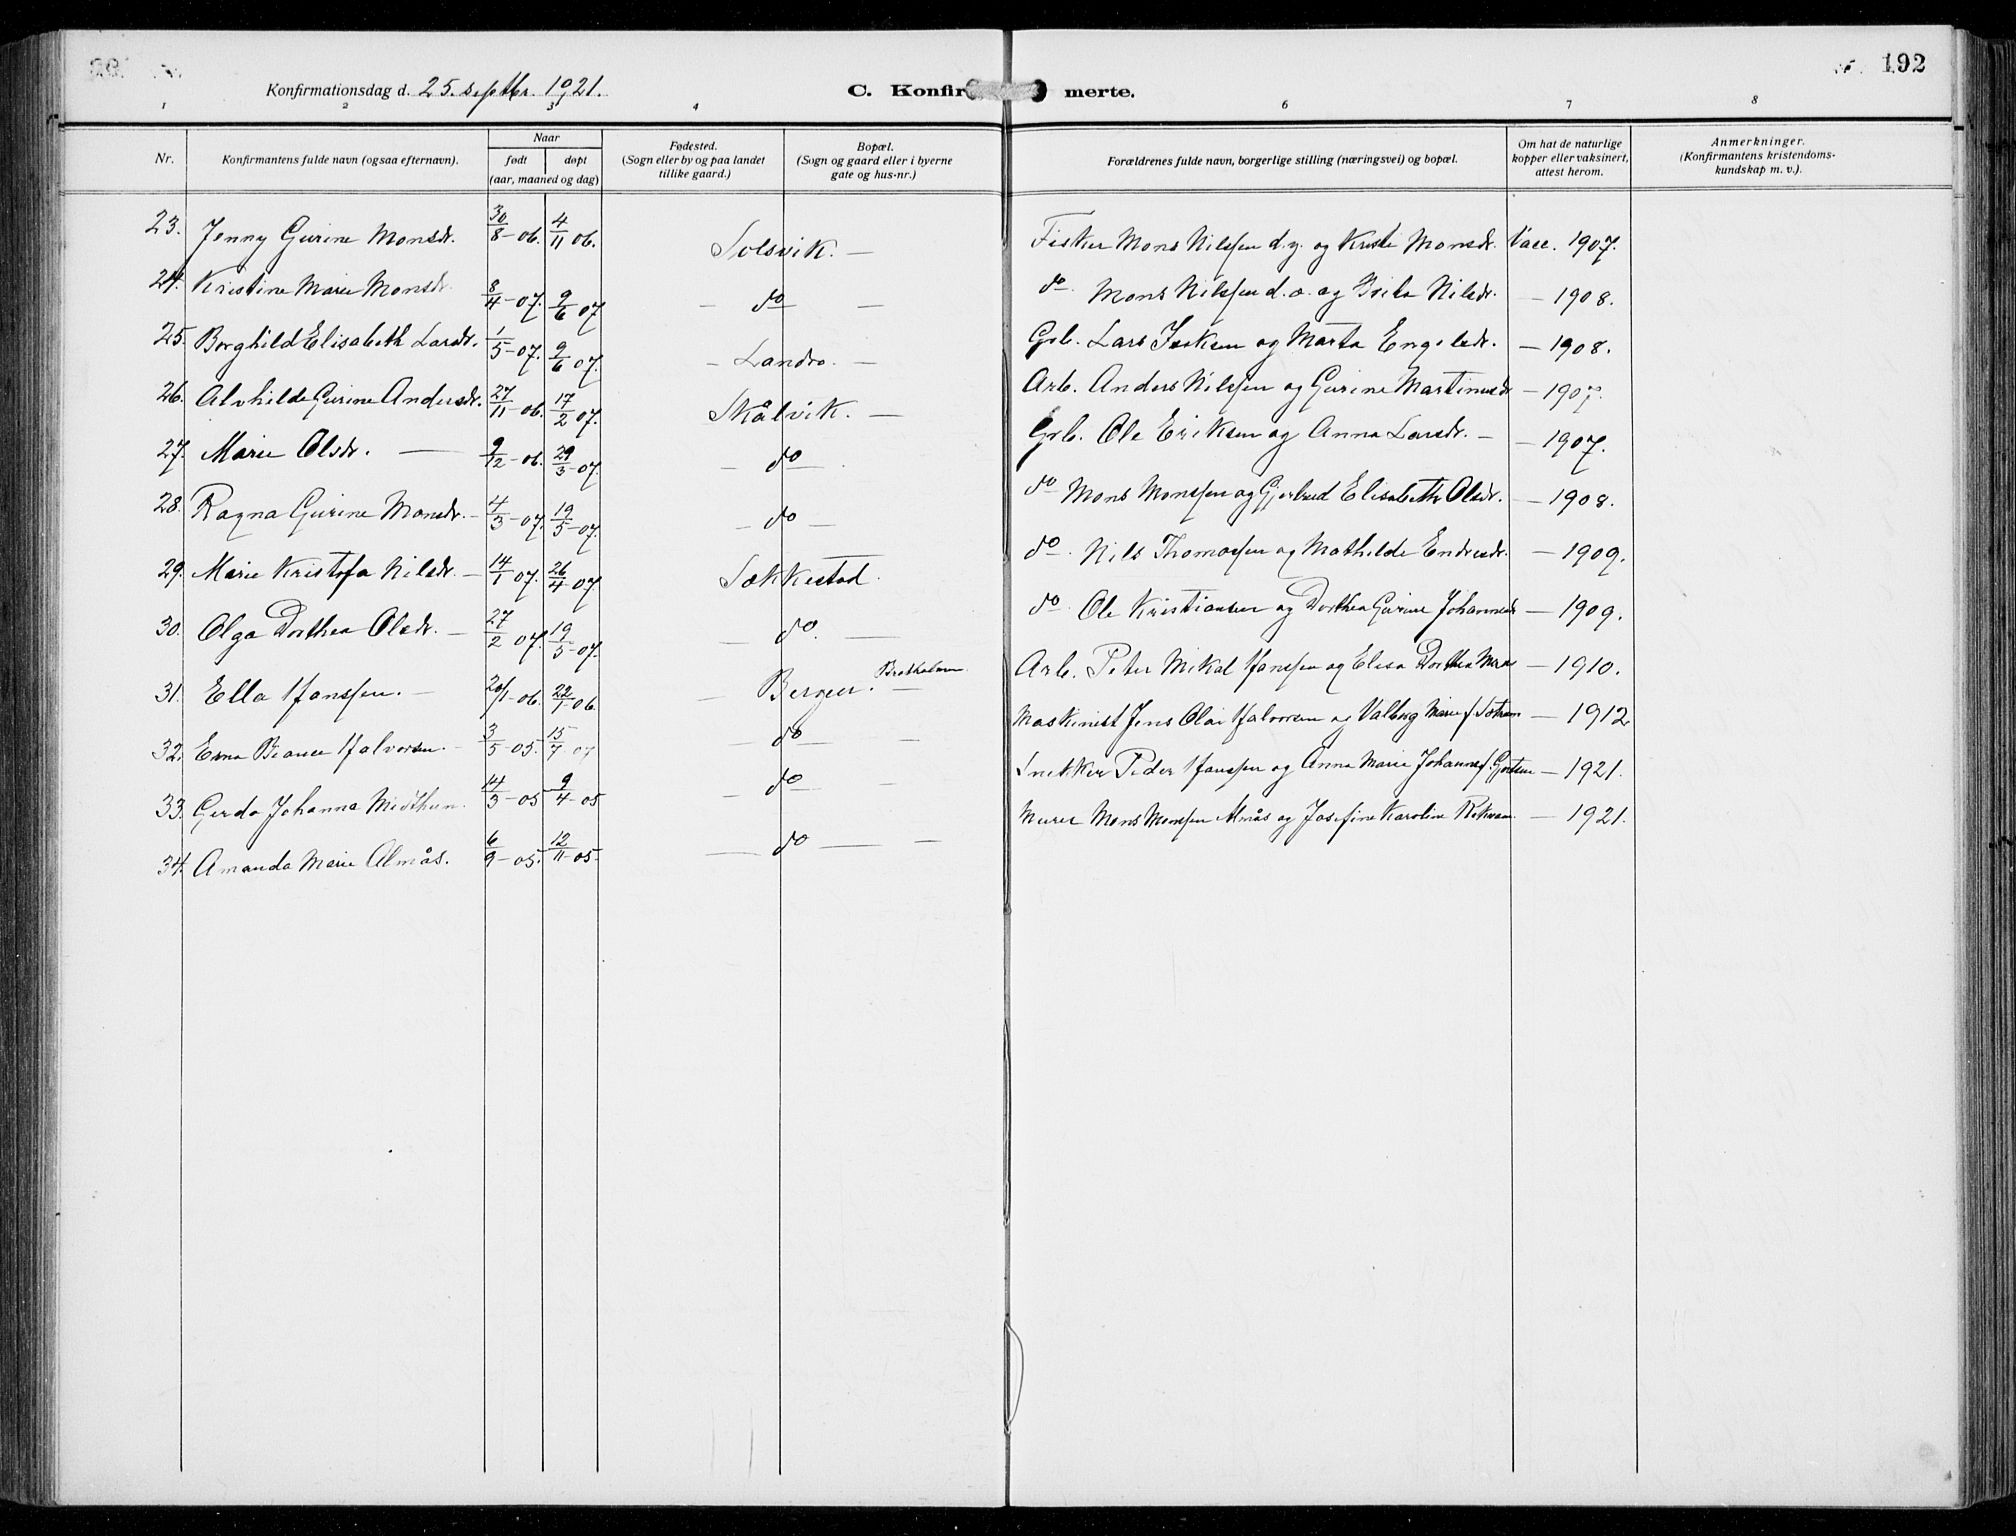 192
Konfirmationsdag d. 25. septbr. 1921.
C. Konfir merte.
1 2 3 4 6 7 8
Nr.
Konfirmantens fulde navn (ogsaa efternavn).
Naar
født døpt
(aar, maaned og dag)
Fødested.
(Sogn eller by og paa landet
tillike gaard.)
Bopæl.
(Sogn og gaard eller i byerne
gate og hus-nr.)
Forældrenes fulde navn, borgerlige stilling (næringsvei) og bopæl.
Om hat de naturlige
kopper eller vaksinert,
attest herom.
Anmerkninger.
(Konfirmantens kristendoms-
kundskap m. v.).
23. Jenny Gurine Monsdr. 30/8-06. 4/11 06. Solsvik. — Fisker Mons Nilssen d.y. og Kristi Monsdr. Vacc. 1907.
24. Kristine Marie Monsdr. 8/4-07. 9/6 07 — do — do Mons Nilssen d. æ. og Brita Nilsdr. — 1908.
25. Borghild Elisabeth Larsdr. 1/5-07. 9/6 07. — Landro. — Grb. Lars Isaksen og Marta Engelsdr. — 1908.
26. Alvhilde Gurine Andersdr. 27/11-06. 17/2 07. Skålvik. — Arb. Anders Nilssen og Gurine Martinusdr — 1907.
27. Marie Olsdr. — 9/12-06. 29/3-07. — do — Grb. Ole Eriksen og Anna Larsdr. — — 1907.
28. Ragna Gurine Monsdr. — 4/3-07. 19/5-07. — do — do Mons Monssen og Gjertrud Elisabeth Olsdr. — 1908.
29. Marie Kristofa Nilsdr. — 14/1 07. 26/4-07 Sækkestad. do. Nils Thomassen og Mathilde Endresdr. — 1909.
30. Olga Dorthea Olsdr. — 27/2 07. 19/5-07. — do. — do. Ole Kristiansen og Dorthea Gurine Johannesdr — 1909.
31. Ella Hanssen. — 20/1-06. 22/1-06. — Bergen. — Bratholmen. Arb. Peter Mikal Hanssen og Elisa Dorthea — 1910.
32. Erna Halvorsen. — 3/5-05. 15/7-07 — do — Maskinist Jens Olai Halvorsen og Valborg Marie f. — 1912
33. Gerda Johanna Midthun. 14/3-05 9/4-05 — do — Snekker Peder Hanssen og Anna Marie Johanne f. — 1921.
34. Amanda Marie Almås. 6/9-05. 12/11-05- — do — Murer Mons Monssen Almås og Josefine Karoline — 1921.